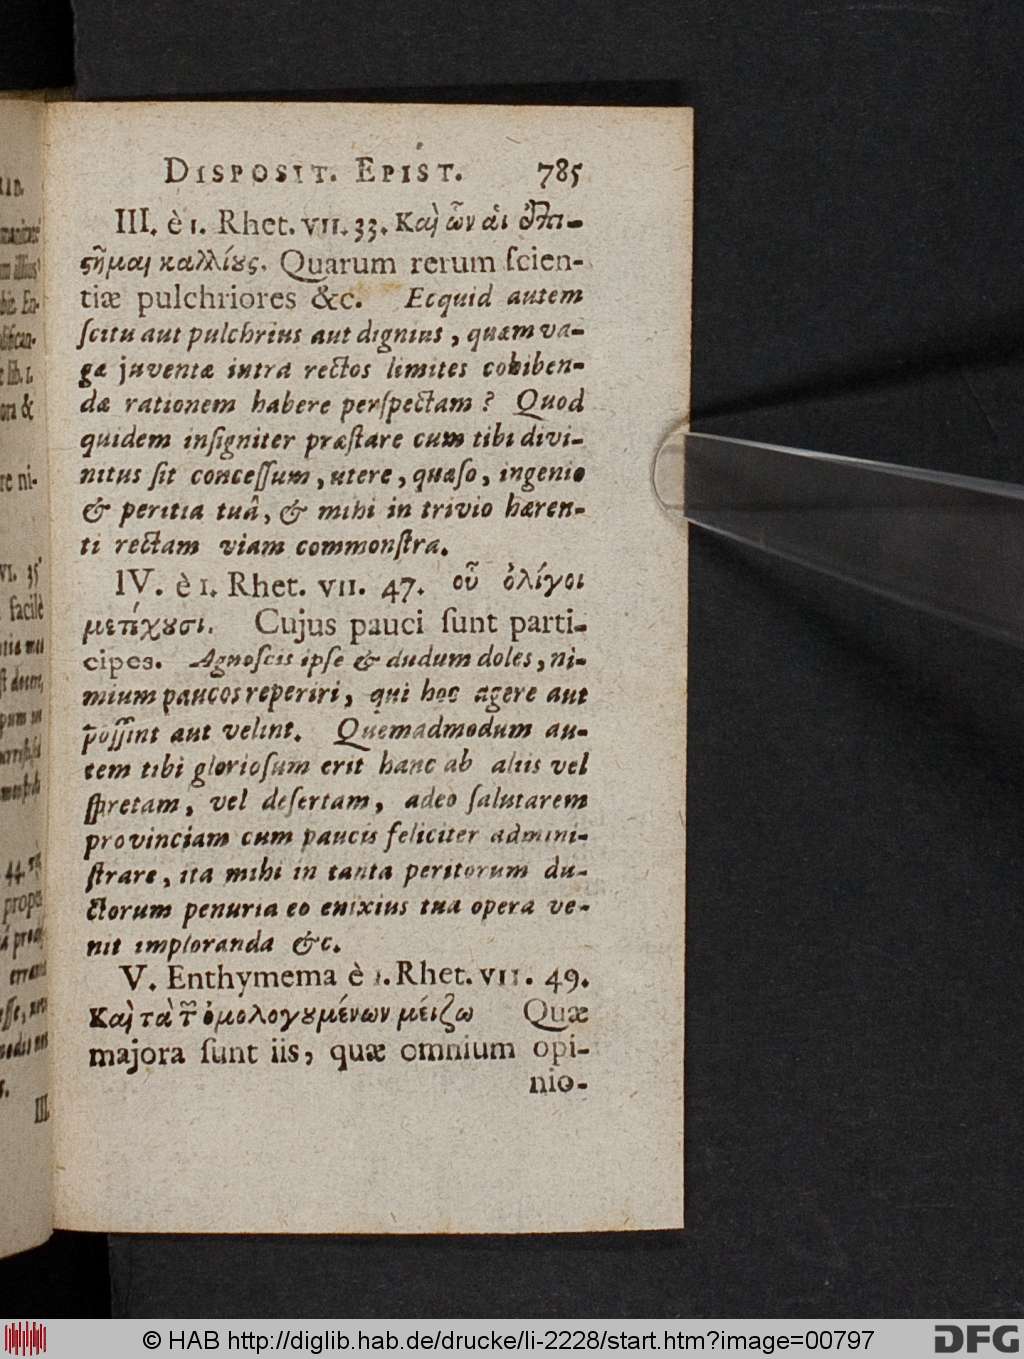 DISPOSIT. EPIST. 785
III. è 1. Rhet. VII. 33. Καὶ ὧν αἱ ἐπι-
ςῆμαι καλλίȣς. Quarum rerum ſcien-
tiæ pulchriores &c. Ecquid autem
ſcitu aut pulchrius aut dignius, quam va-
gæ juventæ intra rectos limites cohiben-
dæ rationem habere perſpectam? Quod
quidem inſigniter præſtare cum tibi divi-
nitus ſit conceſſum, utere, quæſo, ingenio
& peritia tuâ, & mihi in trivio hæren-
ti rectam viam commonſtra.
IV. è 1. Rhet. VII. 47. οὗ ὀλίγοι
μετέχȣσι. Cujus pauci ſunt parti-
cipes. Agnoſcis ipſe & dudum doles, ni-
mium paucos reperiri, qui hoc agere aut
poſſint aut velint. Quemadmodum au-
tem tibi glorioſum erit hanc ab aliis vel
ſpretam, vel deſertam, adeo ſalutarem
provinciam cum paucis feliciter admini-
ſtrare, ita mihi in tanta peritorum du-
ctorum penuria eo enixius tua opera ve-
nit imploranda &c.
V. Enthymema è 1. Rhet. VII. 49.
Καὶ τὰ τ͂ ὁμολογȣμένων μείζω Quæ
majora ſunt iis, quæ omnium opi-
nio-
III.
© HAB http://diglib.hab.de/drucke/li-2228/start.htm?image=00797
DFG